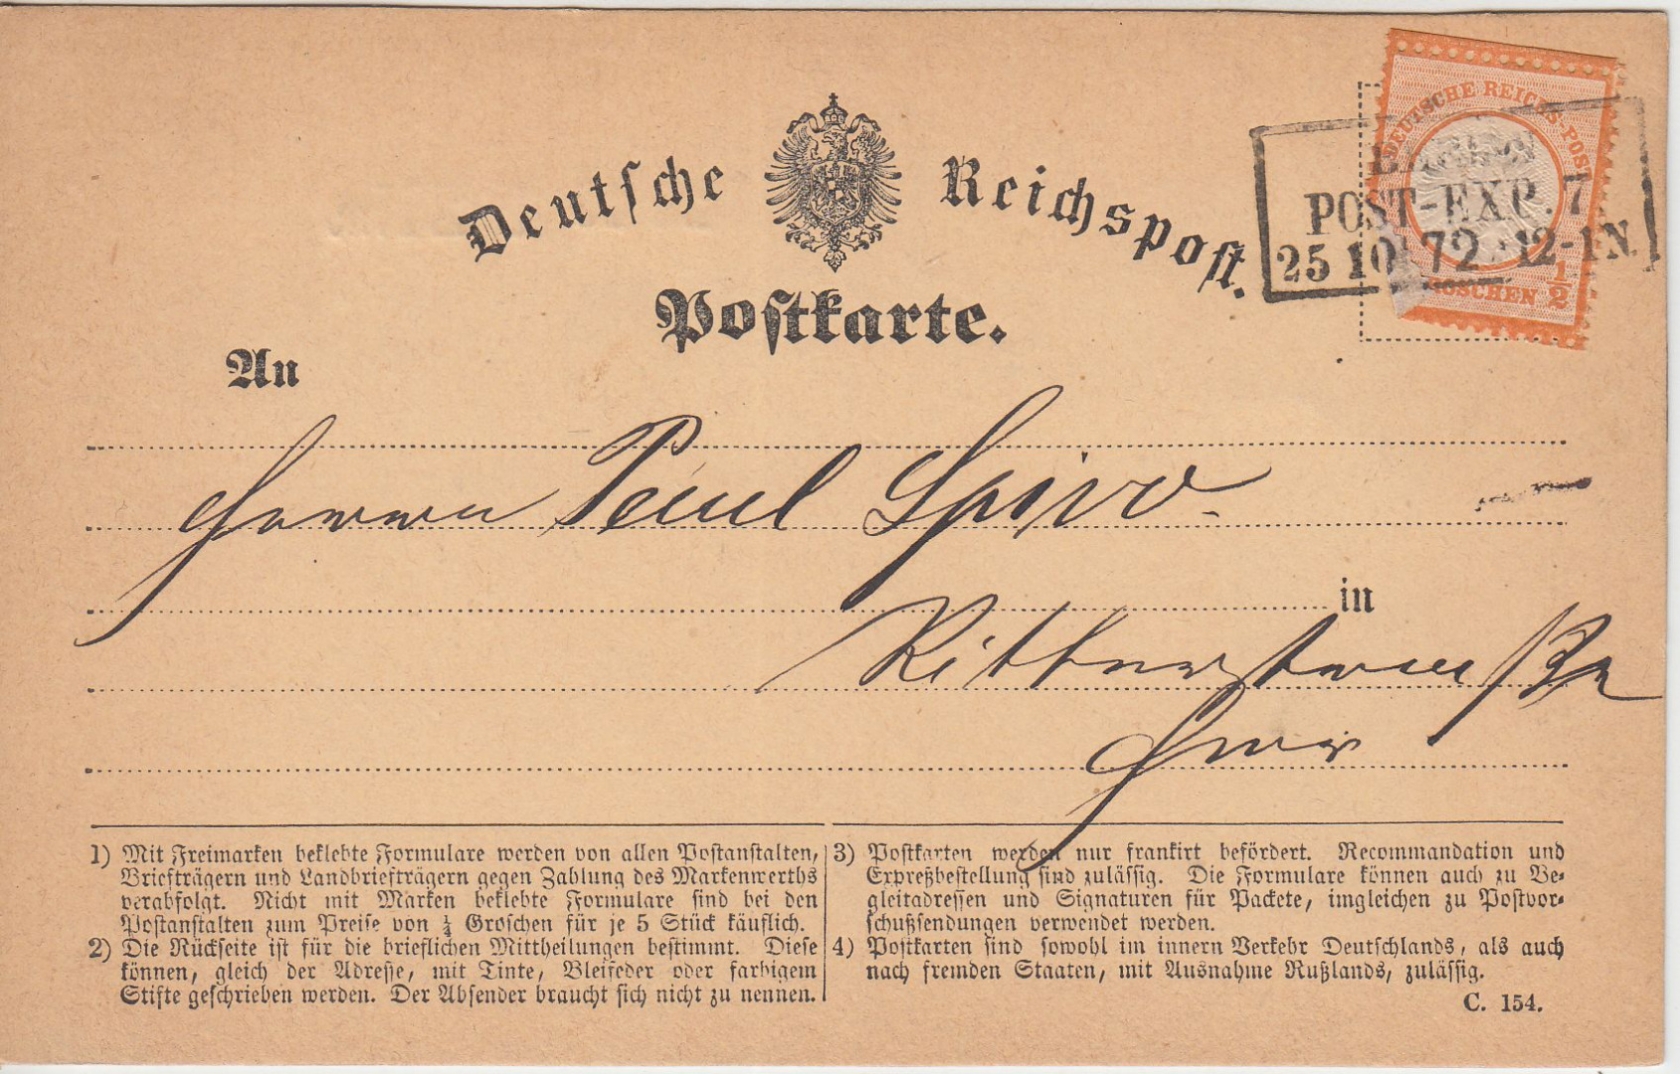 Deutsche Reichspost.
Postkarte.
DEUTSCHE REICHS-POST
1/2 GROSCHEN
POST-EXP. 7
25 10 72 12-1 N.
An
Herrn Paul Spiro.
in
Ritterstraße
hier
1) Mit Freimarken beklebte Formulare werden von allen Postanstalten,
Briefträgern und Landbriefträgern gegen Zahlung des Markenwerths
verabfolgt. Nicht mit Marken beklebte Formulare sind bei den
Postanstalten zum Preise von ¼ Groschen für je 5 Stück käuflich.
2) Die Rückseite ist für die brieflichen Mittheilungen bestimmt. Diese
können, gleich der Adresse, mit Tinte, Bleifeder oder farbigem
Stifte geschrieben werden. Der Absender braucht sich nicht zu nennen.
3) Postkarten werden nur frankirt befördert. Recommandation und
Expreßbestellung sind zulässig. Die Formulare können auch zu Be-
gleitadressen und Signaturen für Packete, imgleichen zu Postvor-
schußsendungen verwendet werden.
4) Postkarten sind sowohl im innern Verkehr Deutschlands, als auch
nach fremden Staaten, mit Ausnahme Rußlands, zulässig.
C. 154.